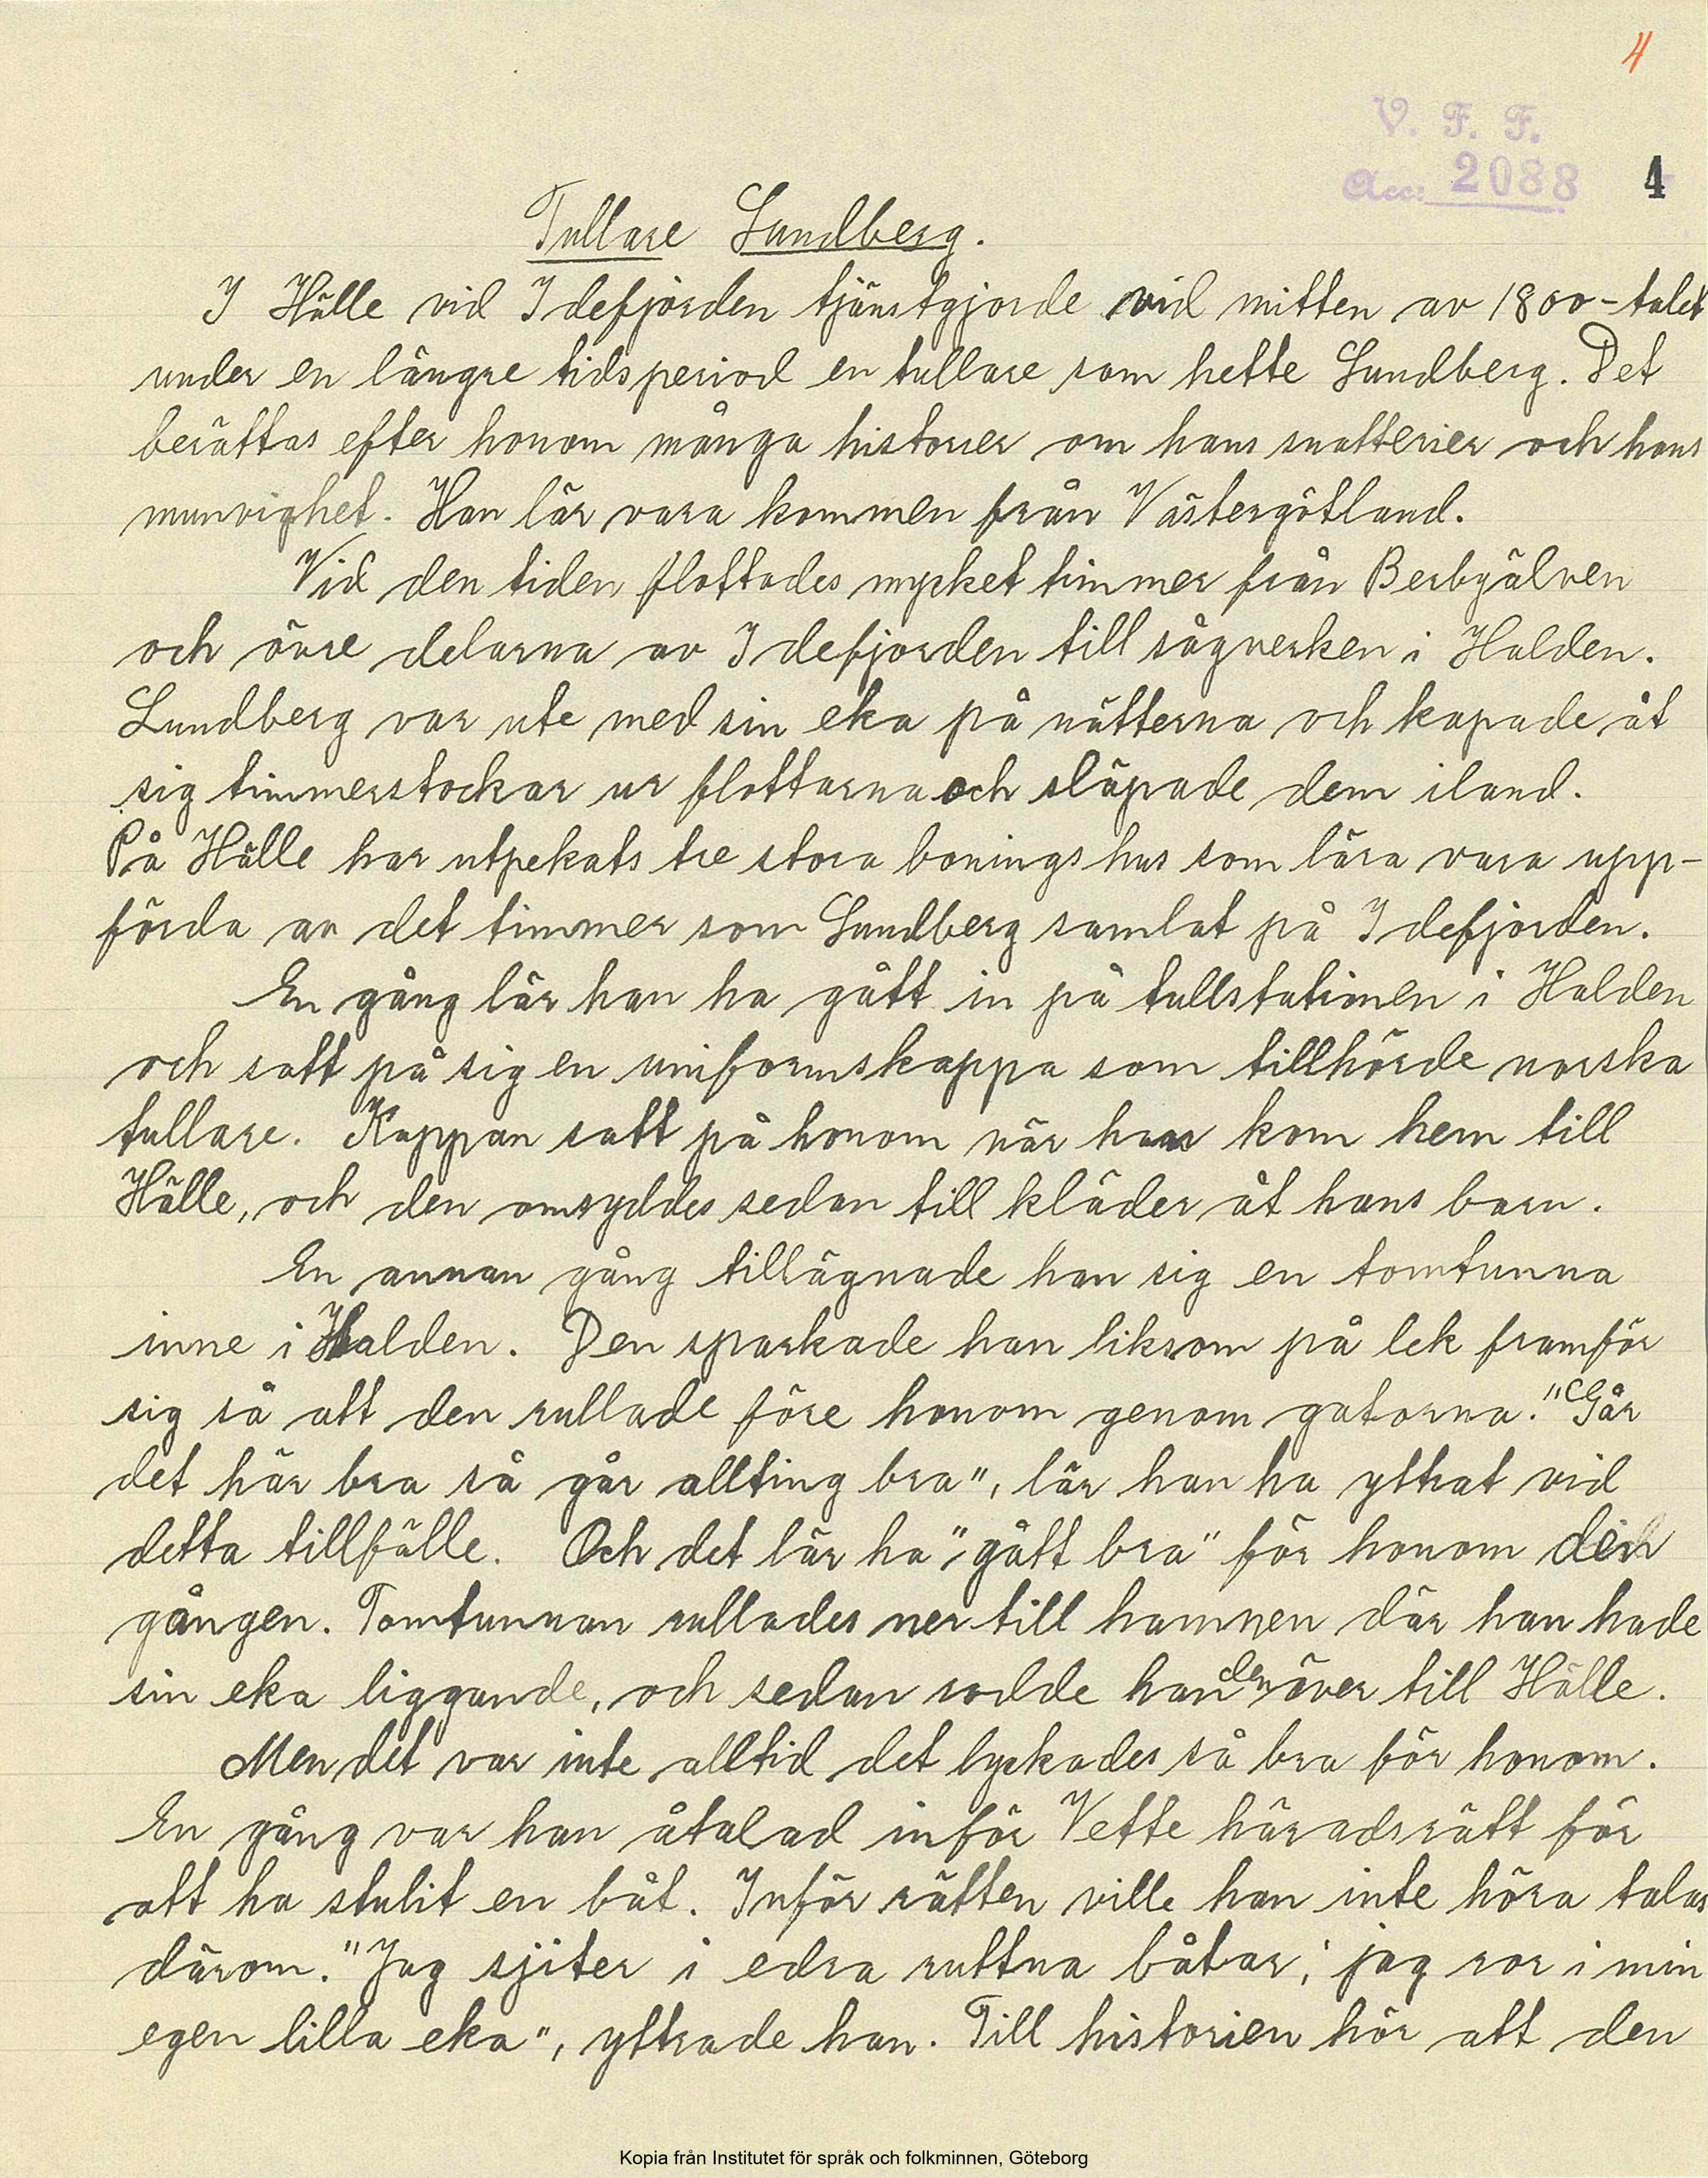 4
V. F. F.
Acc: 2088 4
Tullare Lundberg.
I Hälle vid Idefjorden tjänstgjorde vid mitten av 1800-talet
under en längre tidsperiod en tullare som hette Lundberg. Det
berättas efter honom många historier om hans snatterier och hans
munvighet. Han lär vara kommen från Västergötland.
Vid den tiden flottades mycket timmer från Berbyälven
och övre delarna av Idefjorden till sågverken i Halden.
Lundberg var ute med sin eka på nätterna och kapade åt
sig timmerstockar ur flottarna och släpade dem iland.
På Hälle har utpekats tre stora boningshus som lära vara upp-
förda av det timmer som Lundberg samlat på Idefjorden.
En gång lär han ha gått in på tullstationen i Halden
och satt på sig en uniformskappa som tillhörde norska
tullare. Kappan satt på honom när han kom hem till
Hälle, och den omsyddes sedan till kläder åt hans barn.
En annan gång tillägnade han sig en tomtunna
inne i Halden. Den sparkade han liksom på lek framför
sig så att den rullade före honom genom gatorna. "Går
det här bra så går allting bra", lär han ha yttrat vid
detta tillfälle. Och det lär ha "gått bra" för honom den
gången. Tomtunnan rullades ner till hamnen där han hade
sin eka liggande, och sedan rodde han den över till Hälle.
Men det var inte alltid det lyckades så bra för honom.
En gång var han åtalad inför Vette häradsrätt för
att ha stulit en båt. Inför rätten ville han inte höra talas
därom. "Jag sjiter i edra ruttna båtar; jag ror i min
egen lilla eka", yttrade han. Till historien hör att den
Kopia från Institutet för språk och folkminnen, Göteborg